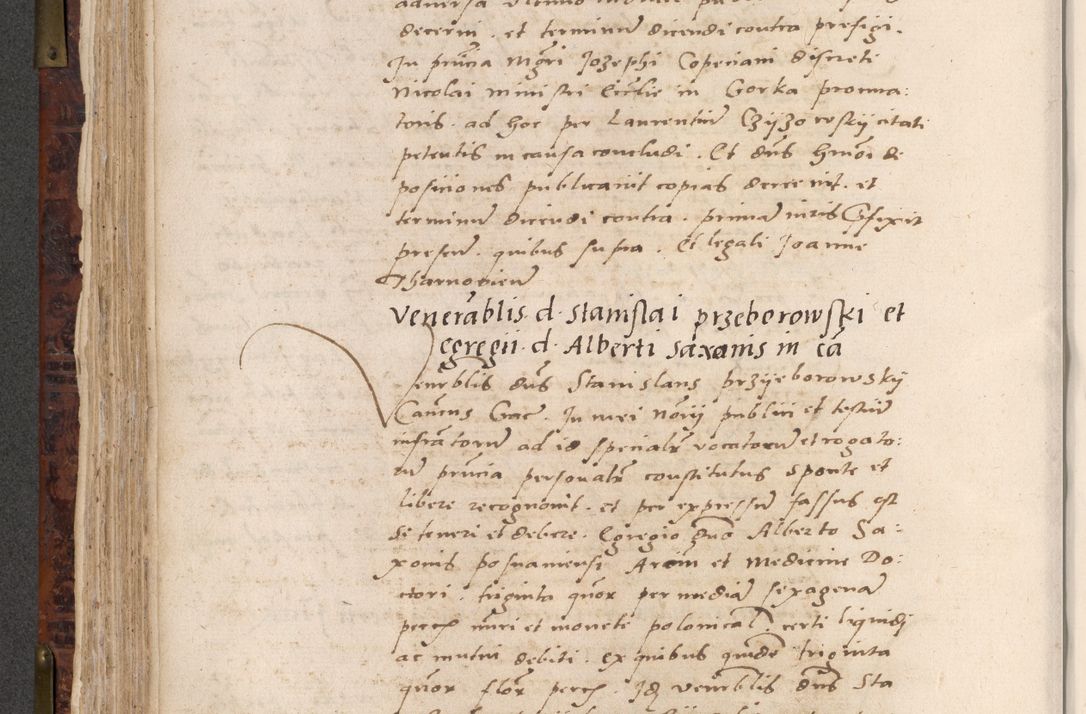 decerni . et terminum dicendi contra prefigi .
In pñcia Mgri Jozephi Copeciani discreti
Nicolai ministri Ecclie in Gorka procura:
toris . ad hoc per Laurentium Czyzowsky citati
petentis in causa concludi . Et dns hmoi de
posiciones publicavit copias decrevit . et
terminum dicendi contra . primam iuris Gsfixit
presen . quibus supra . Et legali Joanne
Tharnovien
Venerablis . d . Stanislai przeborowski et
egregii . d . Alberti Saxonis in ca
Venerblis dns Stanislaus przyeborowsky
Cancus Grac . In mei Norij publici et testium
infrascptorum ad id specialr vocatorum et rogato:
rum pñcia personalr constitutus sponte et
libere recognovit . et per expressum fassus est
se teneri et debere . Egregio dno Alberto Sa:
xonis posnaniensi Arcim et Medicine Do:
ctori . triginta quor per mediam sexagenam
pecch nuri et monete polonical certi liquidj
ac mutui debiti . ex quibus quidem triginta
quor flor pecch . Id venerblis dns Sta